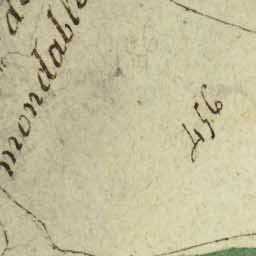 mondable
456